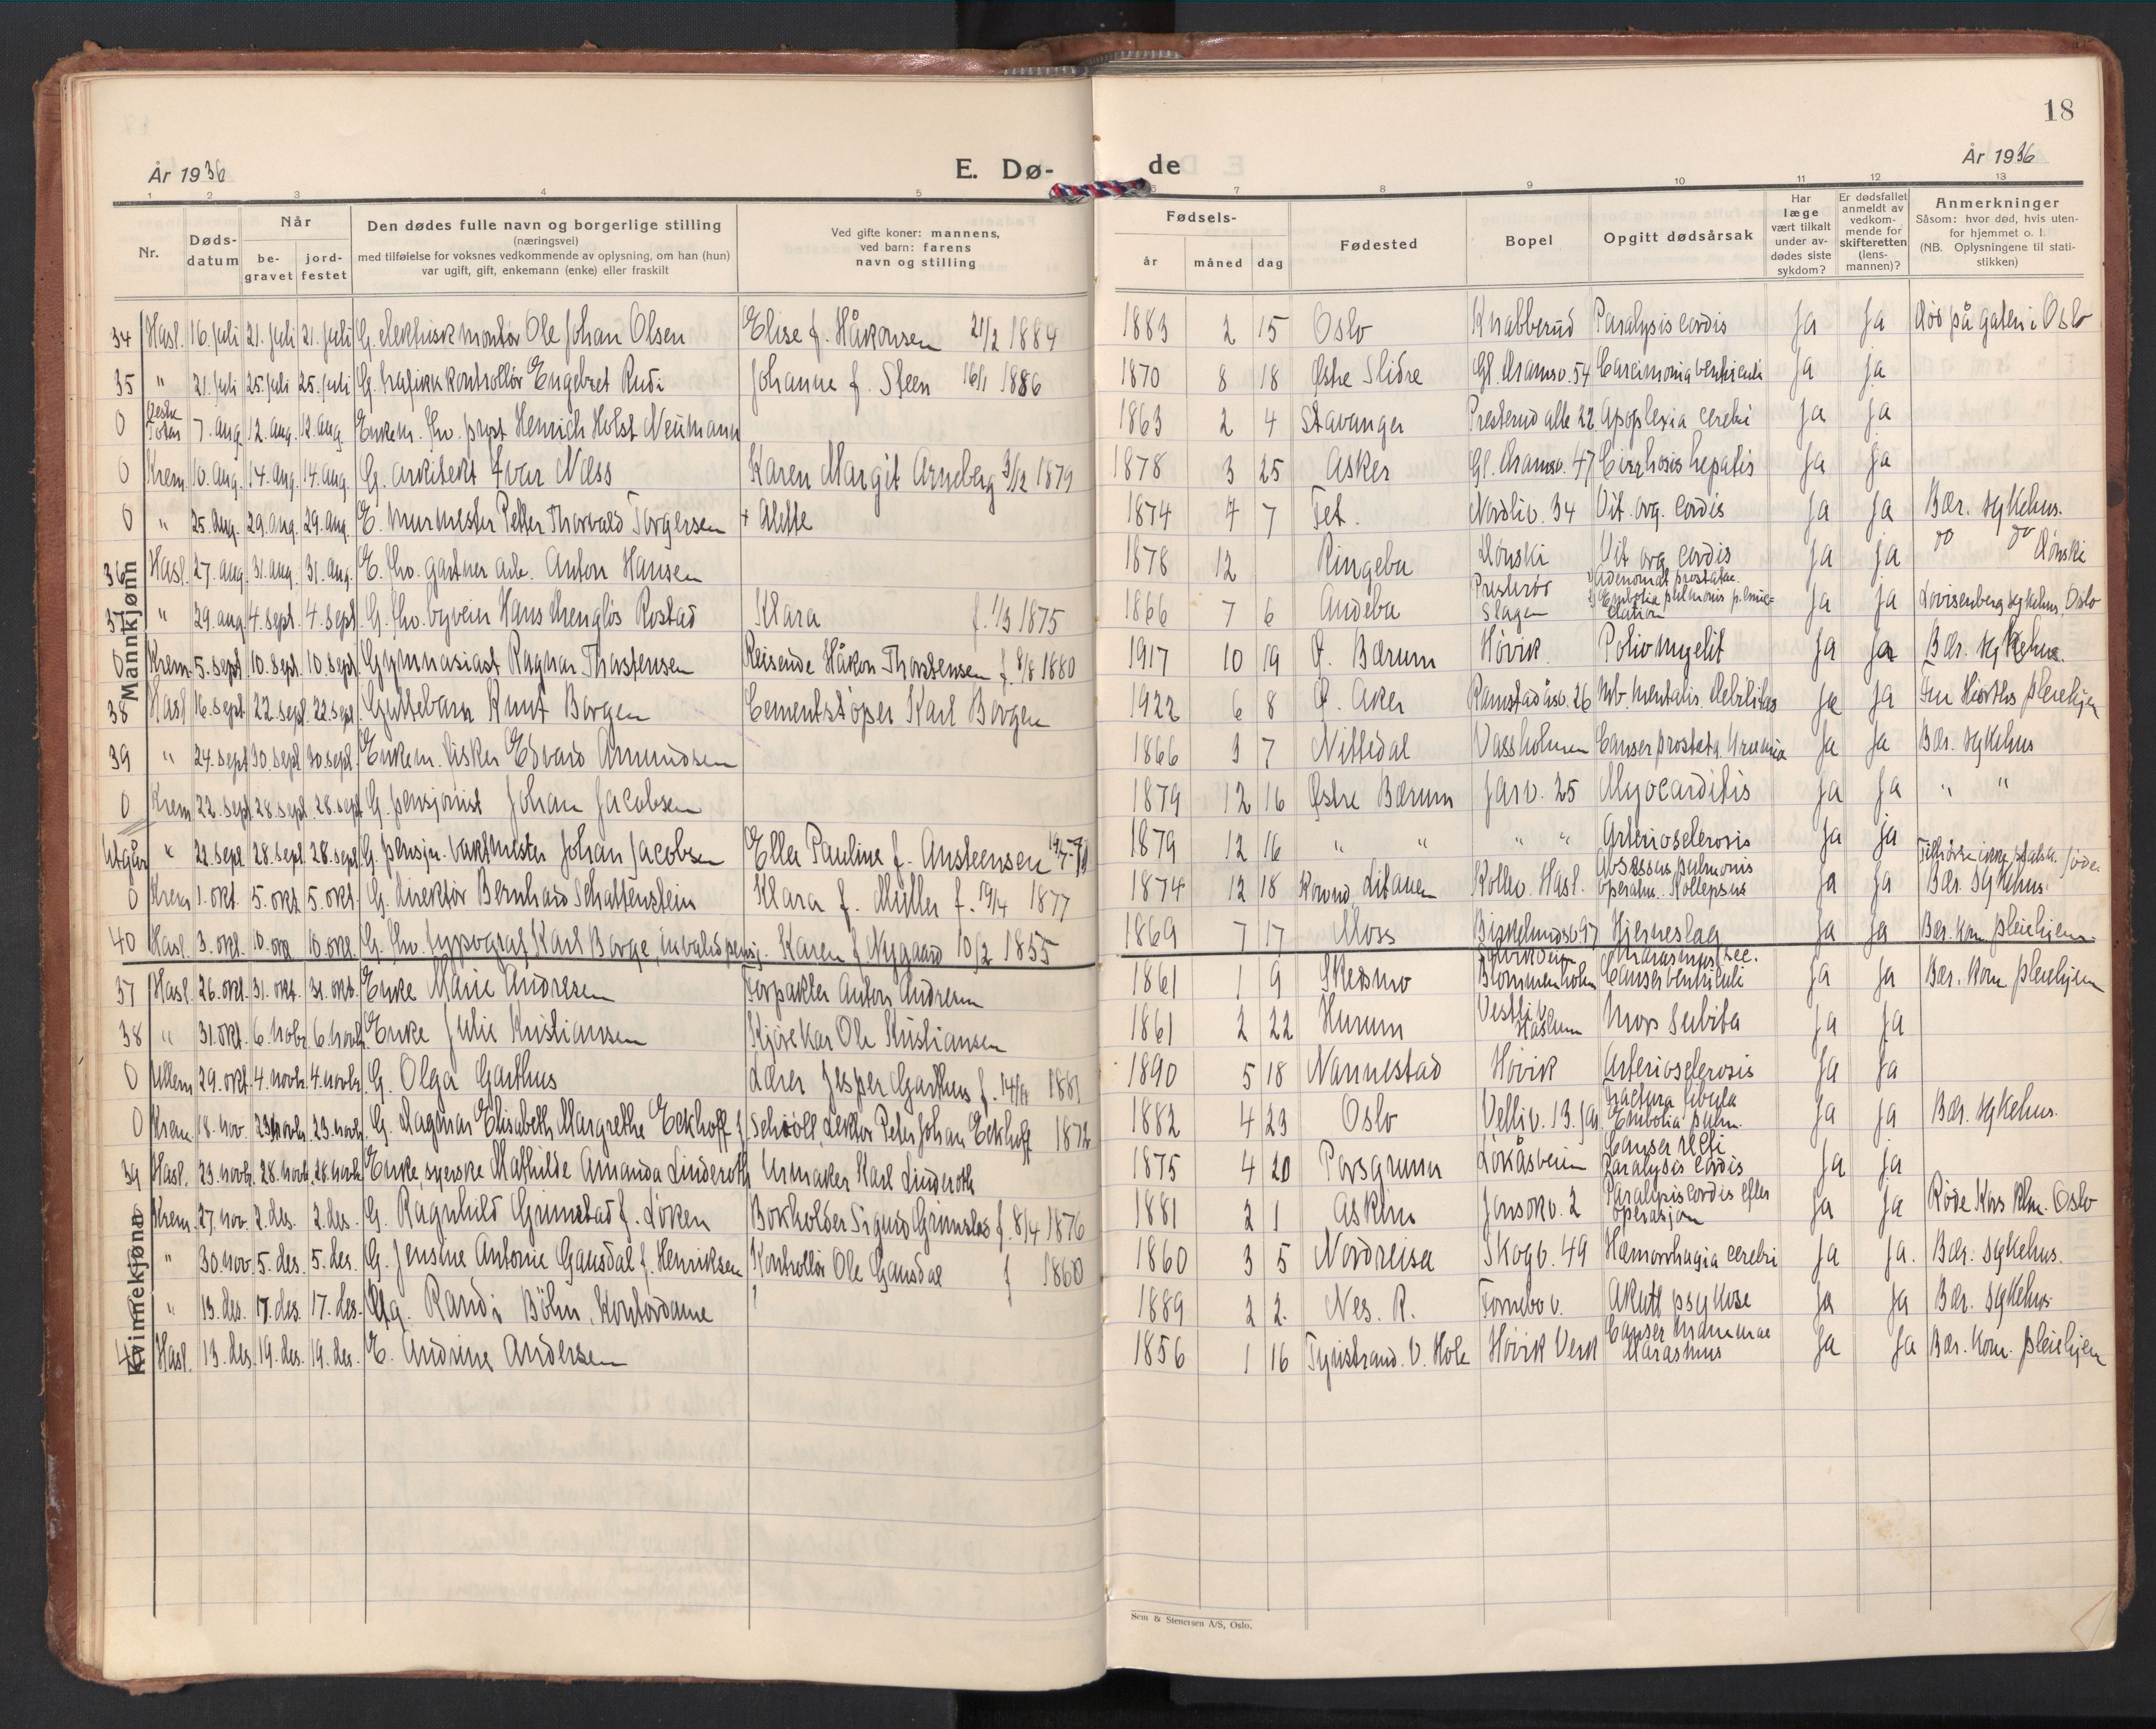 18
År 1936
E. Dø-
de
År 1936
1 2 3 4 5 6 7 8 9 10 11 12 13
Nr.
Døds-
datum
Når
be-
gravet
jord-
festet
Den dødes fulle navn og borgerlige stilling
(næringsvei)
med tilføielse for voksnes vedkommende av oplysning, om han (hun)
var ugift, gift, enkemann (enke) eller fraskilt
Ved gifte koner: mannens,
ved barn: farens
navn og stilling
Fødsels-
år måned dag
Fødested
Bopel
Opgitt dødsårsak
Har
læge
vært tilkalt
under av-
dødes siste
sykdom?
Er dødsfallet
anmeldt av
vedkom-
mende for
skifteretten
(lens-
mannen)?
Anmerkninger
Såsom: hvor død, hvis uten-
for hjemmet o. l.
(NB. Oplysningene til stati-
stikken)
Mannkjønn
34 Hasl. 16. juli 21. juli 21. juli G. elektrisk montør Ole Johan Olsen Elise f. Håkonsen 21/2 1884 1883 2 15 Oslo Knabberud Paralysis cordis Ja Ja Død på gaten i Oslo
35 " 21. juli 25. juli 25. juli G. trafikkkontrollør Engebret Rudi Johanne f. Steen 16/1 1886 1870 8 18 Østre Slidre Gl. dramsv. 54 Carcinoma ventriculi Ja Ja
0 Vestre Toten 7. aug. 12. aug. 12. aug. Enkem. fhv. prost Henrich Holst Neumann 1863 2 4 Stavanger Presterud alle 22 Apoplexia cerebri Ja Ja
0 Krem. 10. aug. 14. aug. 14. aug. G. arkitekt Ivar Næss Karen Margit Arneberg 3/12 1879 1878 3 25 Asker Gl. dramsv. 47 Cirrhosis hepatis Ja Ja
0 " 25. aug. 29. aug. 29. aug. E. murmester Petter Thorvald Torgersen + Alette 1874 7 7 Fet. Nordliv. 34 Vit. org. cordis Ja Ja Bær. sykehus.
36 Hasl. 27. aug. 31. aug. 31. aug. E. fhv. gartner arb. Anton Hansen 1878 12 Ringebu Dønski Vit. org. cordis Ja Ja do do Dønski
37 " 29. aug. 4. sept. 4. sept. G. fhv. byvein Hans Rostad Klara f. 1/3 1875 1866 7 6 Andebu Presterød Slagen Adenomat. prostatae. Embolia pulmonis Ja Ja Lovisenberg sykehus, Oslo
0 Krem. 5. sept. 10. sept. 10. sept. Gymnasiast Ragnar Thorstensen Reisende Håkon Thorstensen f. 8/8 1880 1917 10 19 Ø. Bærum Høvik Poliomyelit Ja Ja Bær. sykehus.
38 Hasl. 16. sept. 22. sept. 22. sept. Guttebarn Knut Borgen Cementstøper Karl Borgen 1922 6 8 Ø. Aker Ramstadåsv. 26 Mb. mentalis. Debilitas Ja Ja Fru Hiorths pleiehjem
39 " 24. sept. 30. sept. 30. sept. Enkem. fisker Edvard Amundsen 1866 3 7 Nittedal Vassholmen Canser prostata Uræmia Ja Ja Bær. sykehus
0 Krem. 22. sept. 28. sept. 28. sept. G. pensjonist Johan Jacobsen 1879 12 16 Østre Bærum Jarv. 25 Myocarditis Ja Ja " "
Utgår " 22. sept. 28. sept. 28. sept. G. pensjn. vaktmester Johan Jacobsen Ellen Pauline f. Ansteensen 1879 12 16 " " " " Arteriosclerosis Ja Ja
0 Krem. 1. okt. 5. okt. 5. okt. G. direktør Bernhard Schattenstein Klara f. Müller f. 19/4 1877 1874 12 18 Kovno, Litauen Kollev. Hasl. Abscessus pulmonis operatus. Kollapsus Ja Ja Tilhørte ikke statsk. Jøde Bær. sykehus.
40 Hasl. 3. okt. 10. okt. 10. okt. G. fhv. typograf Karl Borge, invalidpensj. Karen f. Nygaard 10/2 1855 1869 7 17 Moss Birkelundsv. 97 Hjerneslag Ja Ja Bær. kom. pleiehjem.
Kvinnekjønn
37 Hasl. 26. okt. 31. okt. 31. okt. Enke Marie Andresen Forpakter Anton Andresen 1861 1 9 Skedsmo Blommenholm Canser ventriculi Ja Ja Bær. kom. pleiehjem
38 " 31. okt. 6. novb. 6. novb. Enke Julie Kristiansen Kjørekar Ole Kristiansen 1861 2 22 Hurum Vestliv Haslum Mors subita Ja Ja
0 Ullern 29. okt. 4. novb. 4. novb. G. Olga Garthus Lærer Jesper Garthus f. 14/11 1881 1890 5 18 Nannestad Høvik Arteriosclerosis Ja Ja
0 Krem. 18. nov. 23. novb. 23. novb. G. Dagmar Elisabeth Margrethe Eckhoff f. Schiøll, Lektor Peter Johan Eckhoff 1872 1882 4 23 Oslo Velliv. 13. Jar Fractura fibula Embolia pulm. Ja Ja Bær. sykehus.
39 Hasl. 23. novb. 28. novb. 28. novb. Enke syerske Mathilde Amanda Linderoth Urmaker Karl Linderoth 1875 4 20 Porsgrunn Løkåsveien Canser recti Paralysis cordis Ja Ja
Krem. 27. nov. 2. des. 2. des. G. Ragnhild Grimstad f. Løken Bokholder Sigurd Grimstad f. 8/4 1876 1881 2 1 Askim Jonsokv. 2 Paralysis cordis efter operasjon Ja Ja Røde Kors Klin. Oslo
" 30. nov. 5. des. 5. des. G. Jensine Antonie Gausdal f. Henriksen Kontrollør Ole Gausdal f 1860 1860 3 5 Nordreisa Skogv. 49 Hæmorrhagia cerebri Ja Ja. Bær. sykehus.
" 13. des. 17. des. 17. des. Ug. Randi Böhn, Kontordame ? 1889 2 2. Nes. R. Fornebov. Akutt psykose Ja Ja Bær. sykehus
Hasl. 13. des. 19. des. 19. des. E. Andrine Andersen 1856 1 16 Tyristrand V. Hole Høvik Verk Canser mammae Marasmus Ja Ja Bær. kom. pleiehjem
Sem & Stenersen A/S, Oslo.